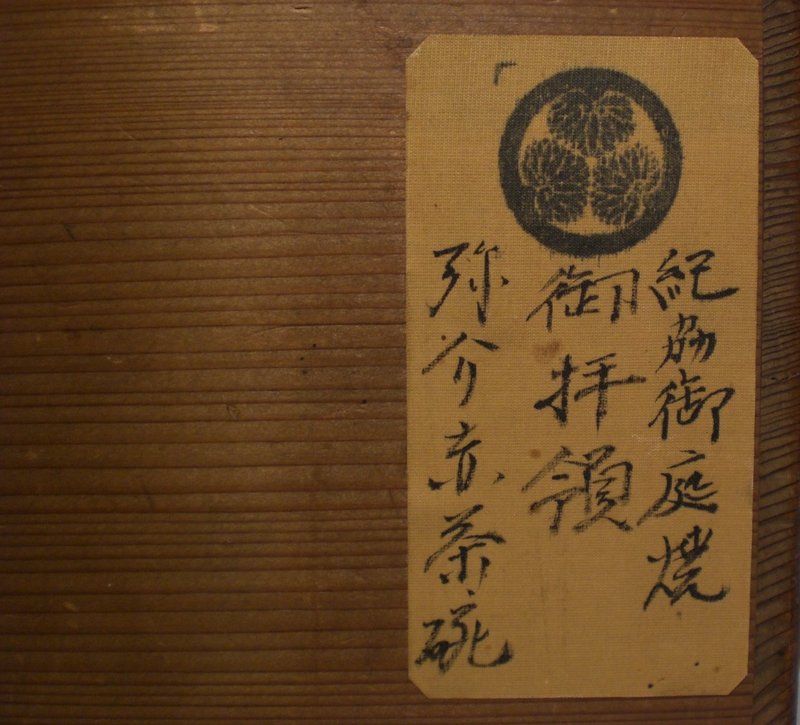 紀州御庭焼
御拝領
弥介赤茶碗